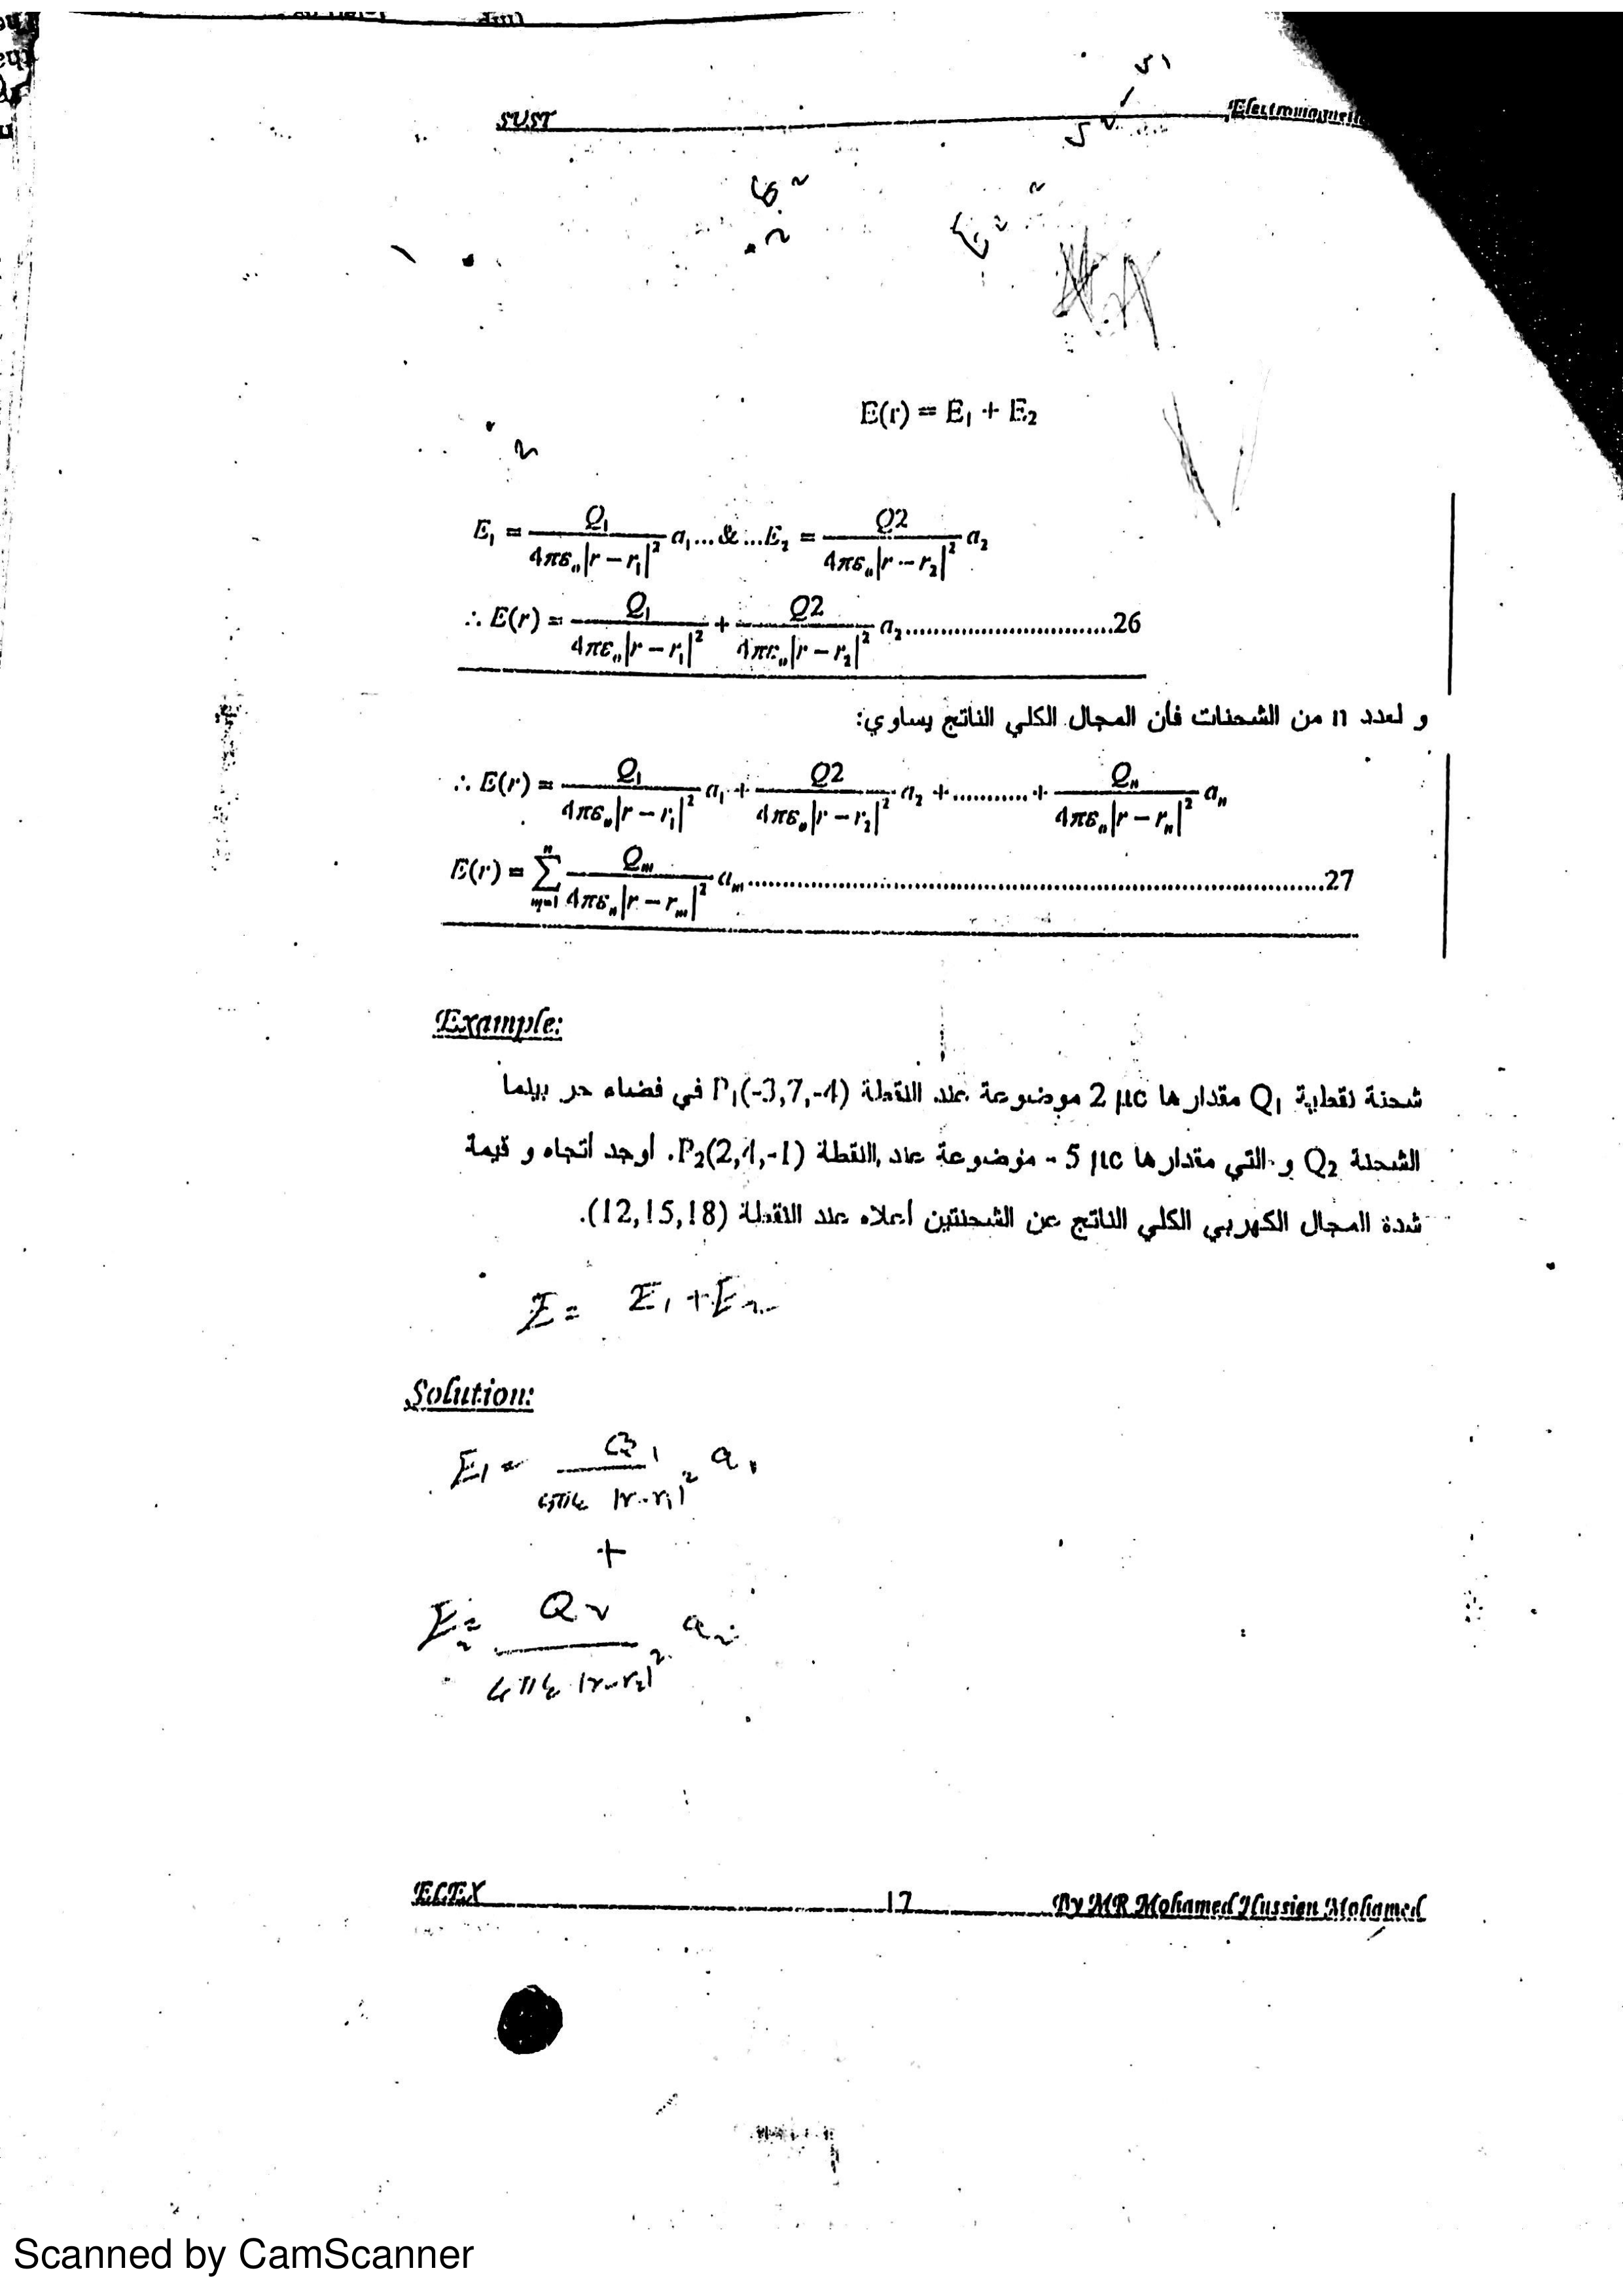 SUST
E(r) = E₁ + E₂
E₁ = Q₁ / 4πε₀|r − r₁|² a₁ ...&... E₂ = Q2 / 4πε₀|r − r₂|² a₂
∴ E(r) = Q₁ / 4πε₀|r − r₁|² + Q2 / 4πε₀|r − r₂|² a₂ .............................26
و لعدد n من الشحنات فأن المجال الكلي الناتج يساوي:
∴ E(r) = Q₁ / 4πε₀|r − r₁|² a₁ + Q2 / 4πε₀|r − r₂|² a₂ + ........... + Qₙ / 4πε₀|r − rₙ|² aₙ
E(r) = ∑ₘ₌₁ⁿ Qₘ / 4πε₀|r − rₘ|² aₘ .............................27
Example:
شحنة نقطية Q₁ مقدارها 2 μc موضوعة عند النقطة P₁(-3,7,-4) في فضاء حر بينما
الشحنة Q₂ و التي مقدارها 5 μc - موضوعة عند النقطة P₂(2,4,-1). أوجد أتجاه و قيمة
شدة المجال الكهربي الكلي الناتج عن الشحنتين أعلاه عند النقطة (12,15,18).
E = E₁ + E₂
Solution:
E₁ = Q₁ / 4πε |r - r₁|² a₁
+
E₂ = Q₂ / 4πε |r - r₂|² a₂
ELEX 17 By MR Mohamed Hussien Mohamed
Scanned by CamScanner